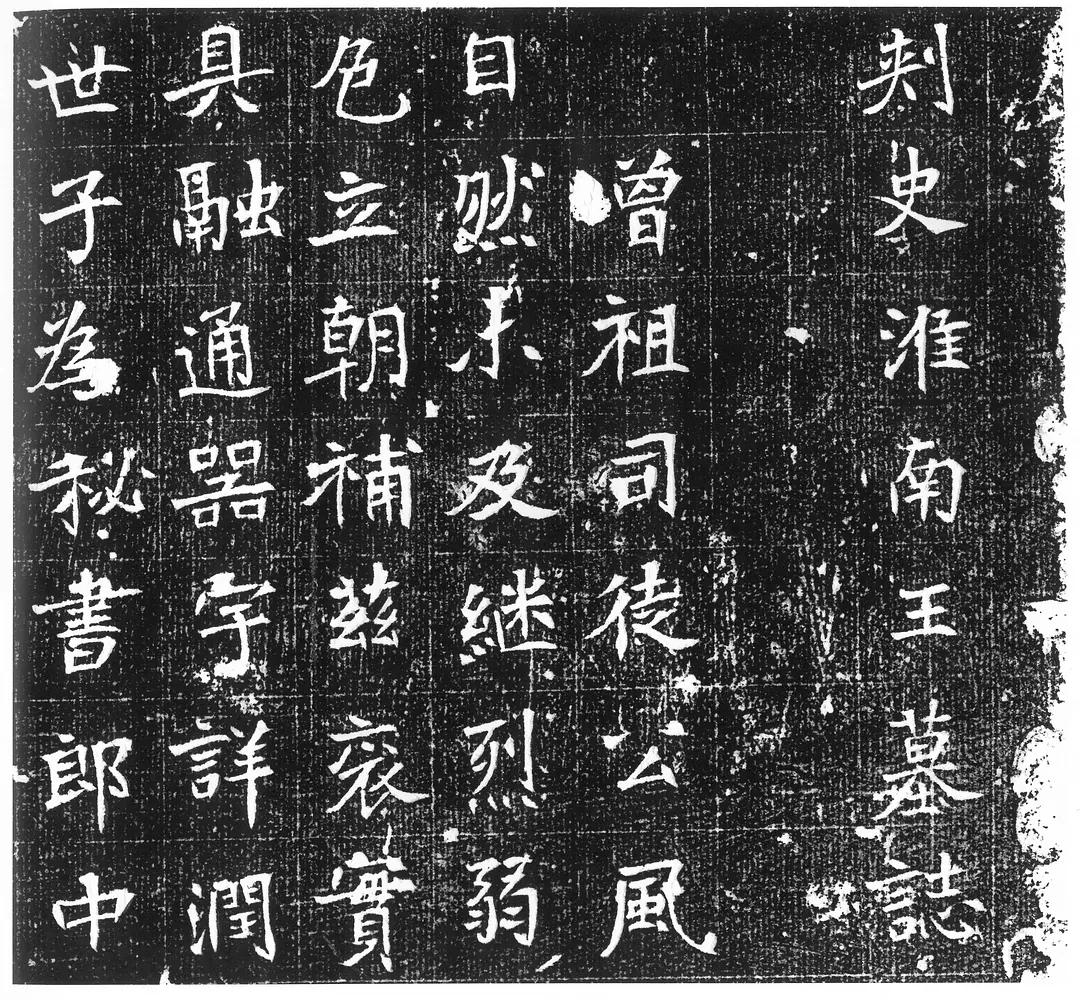 刾史淮南王墓誌
曾祖司徒公風
自然未及継烈弱
危立朝補茲衮實
具融通器宇詳潤
世子為秘書郎中